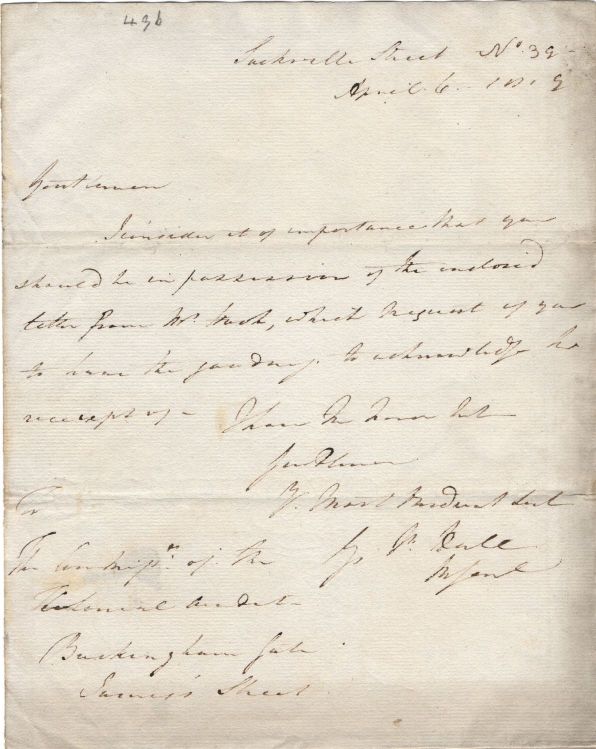 43b
Sackville Street No. 39
April 6. 1819
Gentlemen
I consider it of importance that you
should be in possession of the enclosed
letter from Mr. which I request of you
to have the goodness to acknowledge the
receipt of - I have the honor to be
Gentlemen
Yr. Most Obedient Sert
To
The of the
Colonial Audit
Buckingham Gate
James's Street